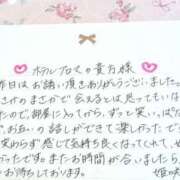 ホテルプロスの貴方様
昨日はお誘い頂きありがとうございました
さかのまさかで会えるとは思っていな
たので、部屋に入ってから、ずっと笑い、
お互いの話しができて楽しかったで
も深めて感じて気持ち良くなってくれて
ったです。またお時間が合いましたら、
お待ちしております。
姫咲